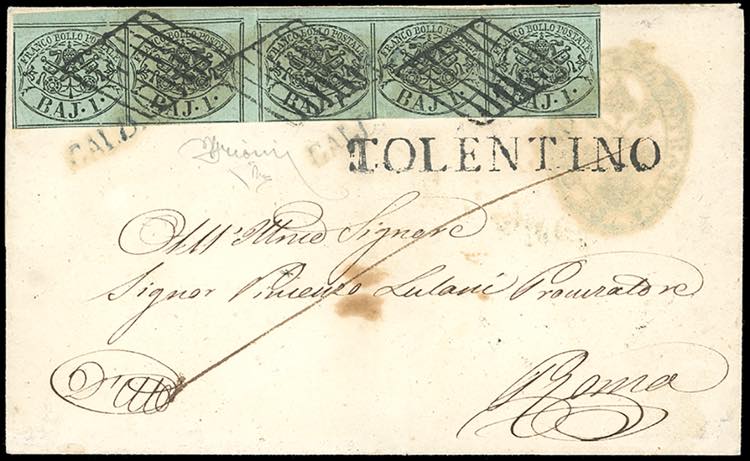 FRANCO BOLLO POSTALE FRANCO BOLLO POSTALE FRANCO BOLLO POSTALE FRANCO BOLLO POSTALE FRANCO BOLLO POSTALE
BAJ. 1. BAJ. 1. BAJ. 1. BAJ. 1. BAJ. 1.
TOLENTINO
All' Illmo Signore
Signor Vincenzo Lulani Procuratore
Roma